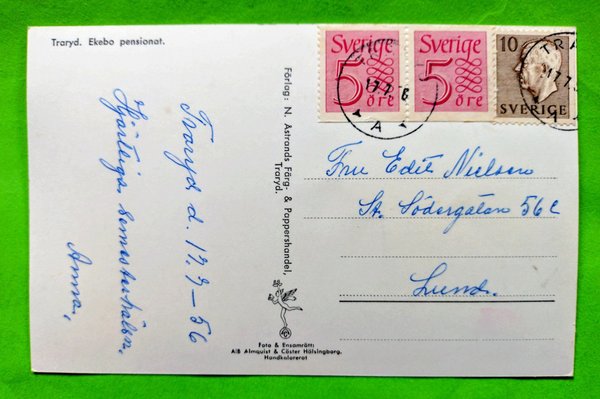 Traryd. Ekebo pensionat.
Traryd d. 17.7-56
Hjärtliga semesterhälsn.
Anna,
Förlag: N. Åstrands Färg- & Pappershandel,
Traryd.
Foto & Ensamrätt:
A/B Almquist & Cöster Hälsingborg.
Handkolorerat
Sverige
5
öre
Sverige
5
öre
10
SVERIGE
17.7.56
A
TRA
17.7
Fru Edit Nielsen
St. Södergatan 56 C
Lund.